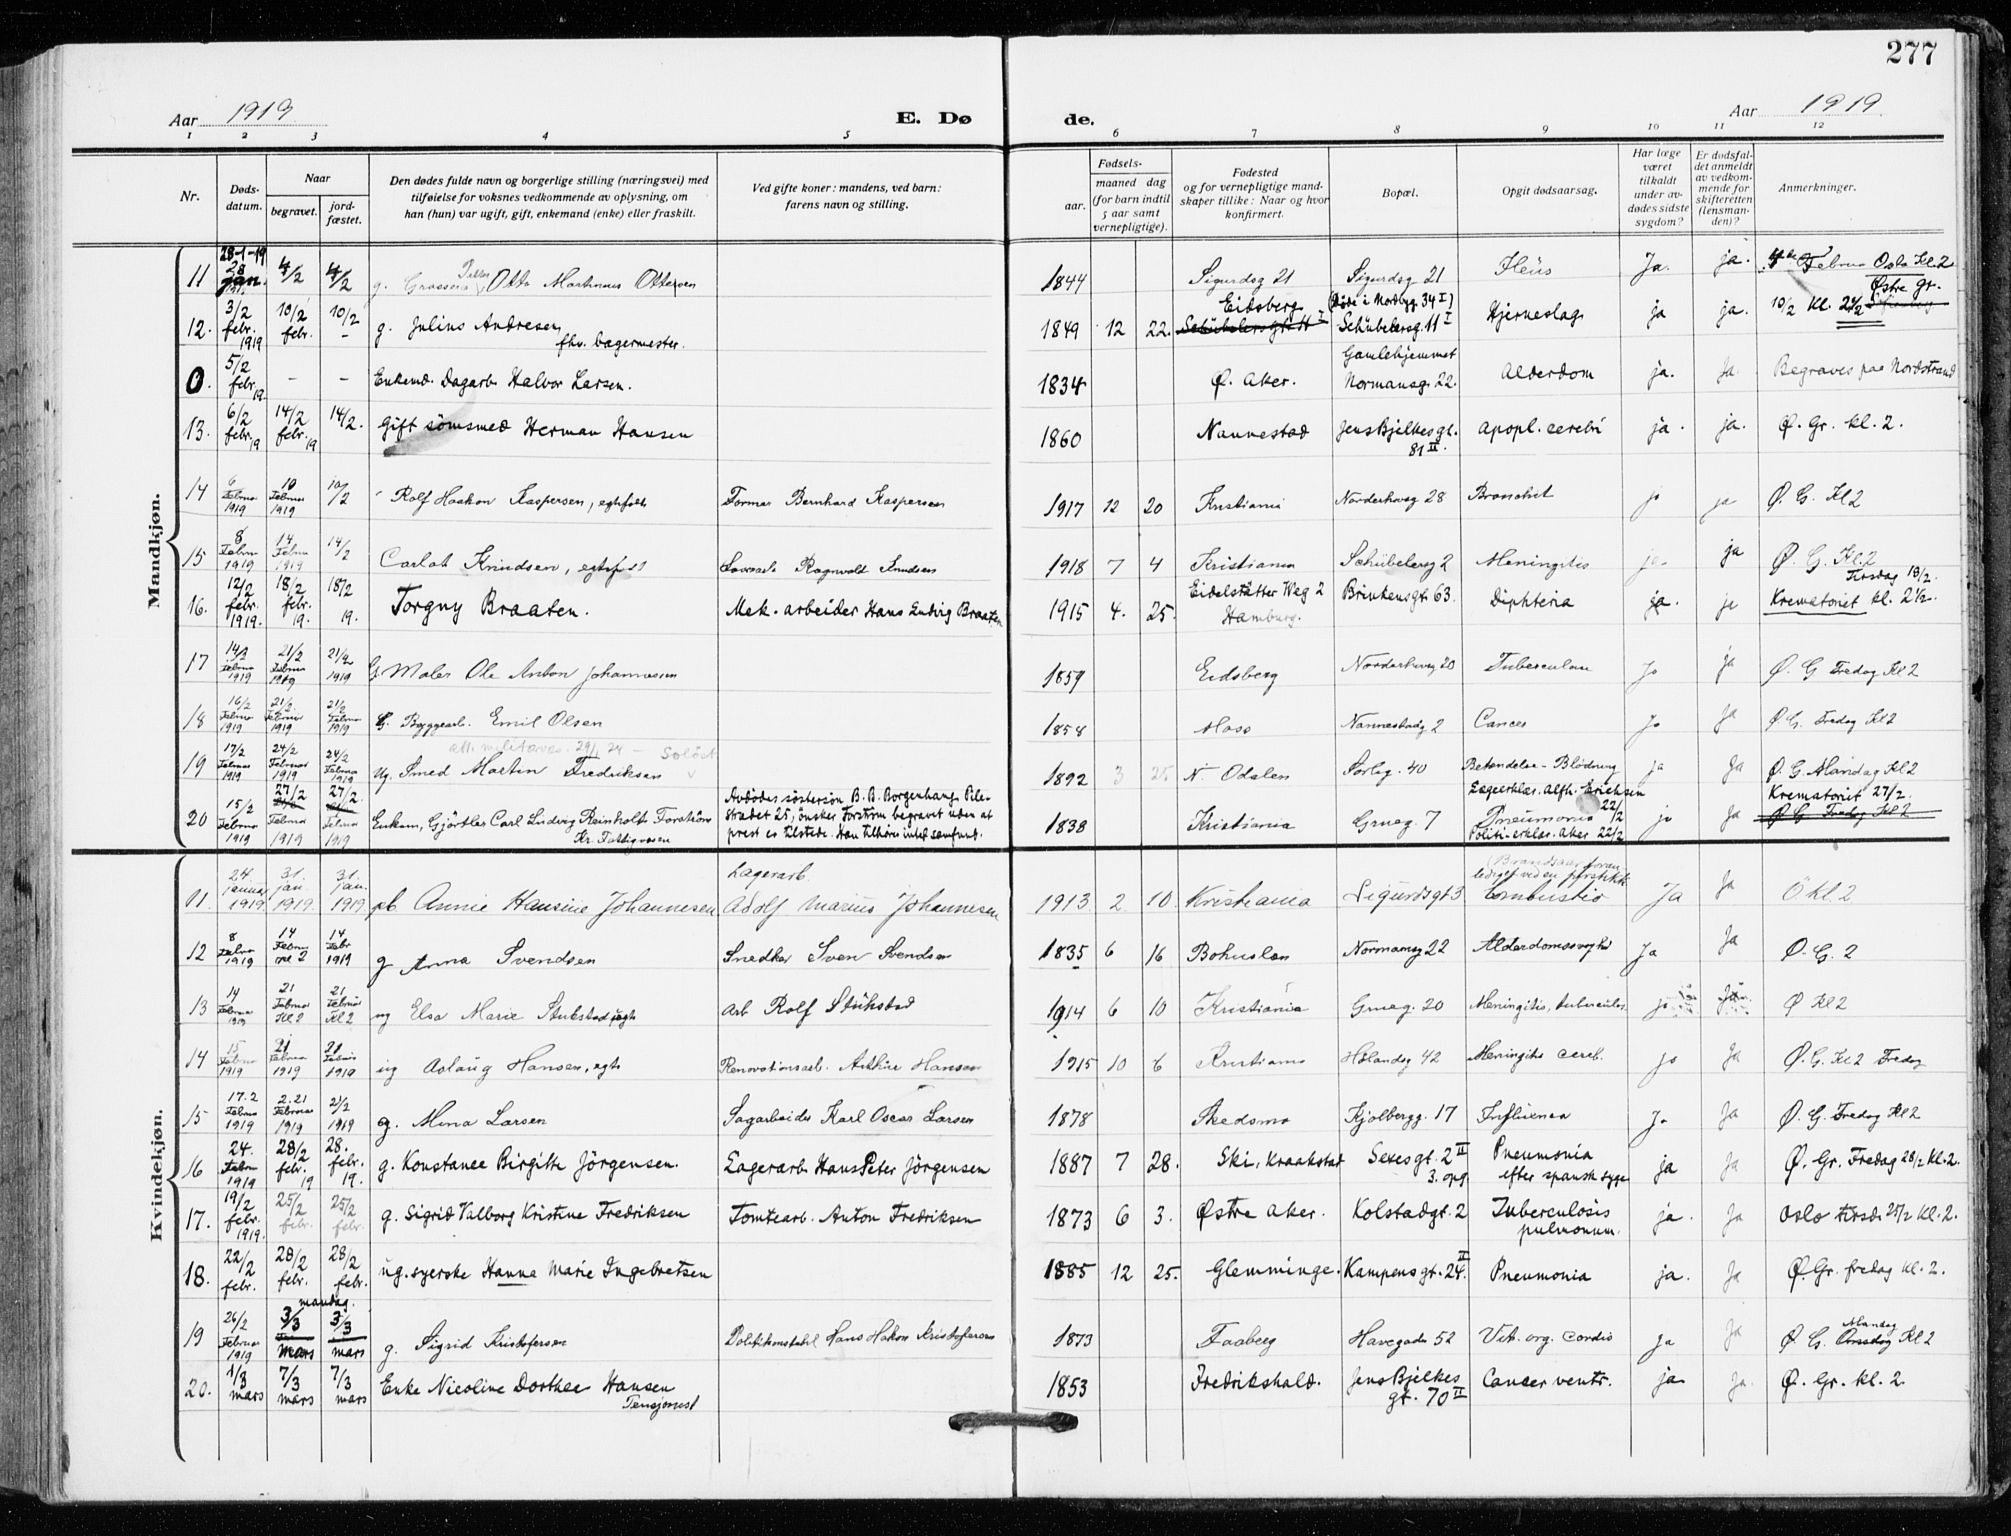 277
Aar 1919.
E. Dø
de.
Aar 1919.
1 2 3 4 5 6 7 8 9 10 11 12
Nr.
Døds-
datum.
Naar
begravet.
jord-
fæstet.
Den dødes fulde navn og borgerlige stilling (næringsvei) med
tilføielse for voksnes vedkommende av oplysning, om
han (hun) var ugift, gift, enkemand (enke) eller fraskilt.
Ved gifte koner: mandens, ved barn:
farens navn og stilling.
Fødsels-
aar.
maaned dag
(for barn indtil
5 aar samt
vernepligtige).
Fødested
og for vernepligtige mand-
skaper tillike: Naar og hvor
konfirmert.
Bopæl.
Opgit dødsaarsag.
Har læge
været
tilkaldt
under av-
dødes sidste
sygdom?
Er dødsfal-
det anmeldt
av vedkom-
mende for
skifteretten
(lensman-
den)?
Anmerkninger.
Mandkjøn.
11 28-1-19 4/2 4/2 g. Grosserer Otto Martinius Ottesen 1844 Sigurdsg 21 Sigurdsg 21 Ileus Ja. ja. Februar Oslo Kl. 2
12. 3/2 febr. 1919 10/2 febr. 10/2 - g. Julius Andresen fhv. bagermester. 1849 12 22. Eidsberg Schübelersgt 11 I (Døde i Nordbyg. 34 I) Schübelersg. 11 I Hjerneslag ja ja. Østre gr. 10/2 Kl. 2 1/2
0. 5/2 febr. 19. - - Enkemd. Dagarb. Halvor Larsen. 1834 Ø. Aker. Gamlehjemmet Normansg. 22. Alderdom ja. Ja Begraves paa Nordstrand
13. 6/2 febr. 19 14/2 febr. 19 14/2. Gift sömsmed Herman Hansen 1860 Nannestad Jens Bjelkes gt. 81 II. Apopl. cerebri ja. ja. Ø. Gr. kl. 2.
14 6 Februar 1919 10 Februar 1919 10/2 Rolf Haakon Kaspersen, egtefødt Former Bernhard Kaspersen 1917 12 20 Kristiania Norderhovsg 28 Bronchit ja Ø. G. Kl 2
15 8 Februar 1919 14 Februar 1919 14/2 Knudsen, Ragnvald Knudsen 1918 7 4 Kristiania Schübelersg 2 Meningitis ja Ø. G. Kl. 2
16. 12/2 febr. 1919. 18/2 febr. 19. 18/2 19. Torgny Braaten. Mek. arbeider Hans Ludvig Braaten 1915 4. 25. Eidelstätter Weg 2 Hamburg. Brinkensgt. 63. Diphteria ja. ja Tirsdag 18/2. Krematoriet kl. 2 1/2.
17 14/2 Februar 1919 21/2 Februar 1919 21/2 1919 G. Maler Ole Anton Johannesen 1859 Eidsberg Norderhovsg 20 Tuberculose Ja ja Ø. G Fredag Kl 2
18 16/2 Februar 1919 21/2. Februar 1919 21/2 Februar 1919 G. Byggearb. Emil Olsen 1858 Moss Nannestadg 2 Cancer Ja Ja Ø G. Fredag Kl 2
att. militærves. 29/1 24 -
19 17/2 Februar 1919 24/2 Februar 1919 24/2 Februar 1919 Ug. Smed Martin Fredriksen 1892 3 25 N. Odalen Sorlig. 40 Betændelse - Blødning ja Ja Ø. G. Mandag Kl 2
20 15/2 Februar 1919 27/2 Februar 1919 27/2. Februar 1919 Enkem. Gjörtler Carl Ludvig Reinholt Forström Kr. Fattigvæsen Avdödes söstersön B. B. Borgenhaug, Pile-
stradet 25, önsker Forström begravet uden at
prest er tilstede. Han tilhörer intet samfund. 1838 Kristiania Grueg. 7 Lægeerklær. Alfh. Erichsen 22/2 Pneumonia Politi-erklær. Aker 22/2 ja Ja Krematoriet 27/2. Ø G Fredag Kl 2
Kvindekjøn.
11. 24. januar 1919. 31. jan. 1919. 31. jan. 1919 pb Annie Hansine Johannesen Lagerarb. Adolf Marius Johannesen 1913 2 10 Kristiania Sigurdsgt 3 Combustio Ja Ja Ö kl. 2
12 8 Februar 1919 14 Februar Kl 2 14 Febr 1919 g Anna Svendsen Snedker Sven Svendsen 1835 6 16 Bohuslen Normannsg 22 Alderdomssvaghed Ja Ja Ø. G. 2
13 14 Februar 1919 21 Februar Kl 2 21 Februar Kl 2 ug Elsa Marie Stubstad Arb Rolf Stubstad 1914 6 10 Kristiania Grueg. 20 Meningitis, tuberculos. ja Ø Kl 2
14 15 Februar 1919 21 Februar 1919 21 Februar 1919 ug Aslaug Hansen, egte Renovationsarb. Arthur Hansen 1915 10 6 Kristiania Hølandsg 42 Meningitis cereb. ja Ja Ø. G. Kl 2 Fredag
15 17.2 Februar 1919 2. 21 Februar 1919 21/2 1919 g. Mina Larsen Sagarbeider Karl Oscar Larsen 1878 Skedsmo Kjølbergg. 17 Influensa Ja Ja Ø. G. Fredag Kl 2
16 24. Febru 1919 28/2 febr. 19 28. febr. 19. g. Konstance Birgitte Jörgensen. Lagerarb. Hans Peter Jörgensen 1887 7 28. Ski, Kraakstad Sexesgt. 2 II 3. opg. Pneumonia efter spansk syge ja Ja Ø. Gr. Fredag 28/2 Kl. 2.
17. 19/2 febr. 1919. 25/2 febr. 25/2 febr. g. Sigrid Valborg Kristine Fredriksen Tomtearb. Anton Fredriksen 1873 6 3. Østre Aker. Kolstadgt. 2 Tuberculosis pulmonum. ja. Ja Oslo tirsd. 25/2 Kl. 2.
18. 22/2 febr. 28/2 febr. 28/2 febr. ug. syerske Hanna Marie Ingebretsen 1885 12 25. Glemminge. Kampensgt. 24 II. Pneumonia ja. Ja Ø. Gr. fredag kl. 2.
19 26/2 Februar 1919 mandag. 3/3 mars 3/3 mars g. Sigrid Kristofersen Politikonstabel Hans Hakon Kristofersen 1873 Faaberg Havegade 52 Vit. org. cordis ja Ja Ø G. Mandag Kl 2
20. 1/3 mars 7/3 mars 7/3 mars Enke Nicoline Dorthea Hansen Pensjonist 1853 Fredrikshald. Jens Bjelkes gt. 70 II Cancer ventr. ja Ja. Ø. Gr. kl. 2.